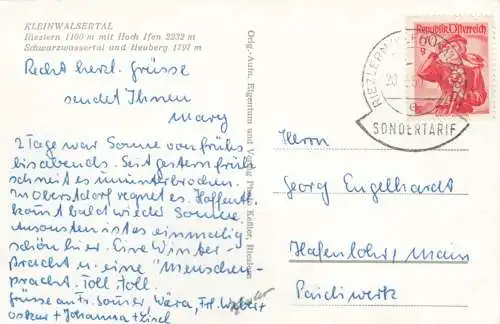 KLEINWALSERTAL
Riezlern 1100 m mit Hoch Ifen 2232 m
Schwarzwassertal und Heuberg 1797 m
Recht herzl. Grüsse
sendet Ihnen
Mary
2 Tage war Sonne von früh
bis abends. Seit gestern früh
schneit es ununterbrochen.
In Oberstdorf regnet es. Hoffentl.
kommt bald wieder Sonne.
Ansonsten ist es einmalig
schön hier. Eine Winter-
pracht u. eine "Menschen-
pracht. Toll, toll.
Grüsse an Fr.
Oskar + Johanna +
Orig.-Aufn. Eigentum und Verlag Photo Keßler, Riezlern
Republik Österreich
60 g
RIEZLERN
20
e
SONDERTARIF
Herrn
Georg Engelhardt
Hafenlohr/Main
Paidiwerk